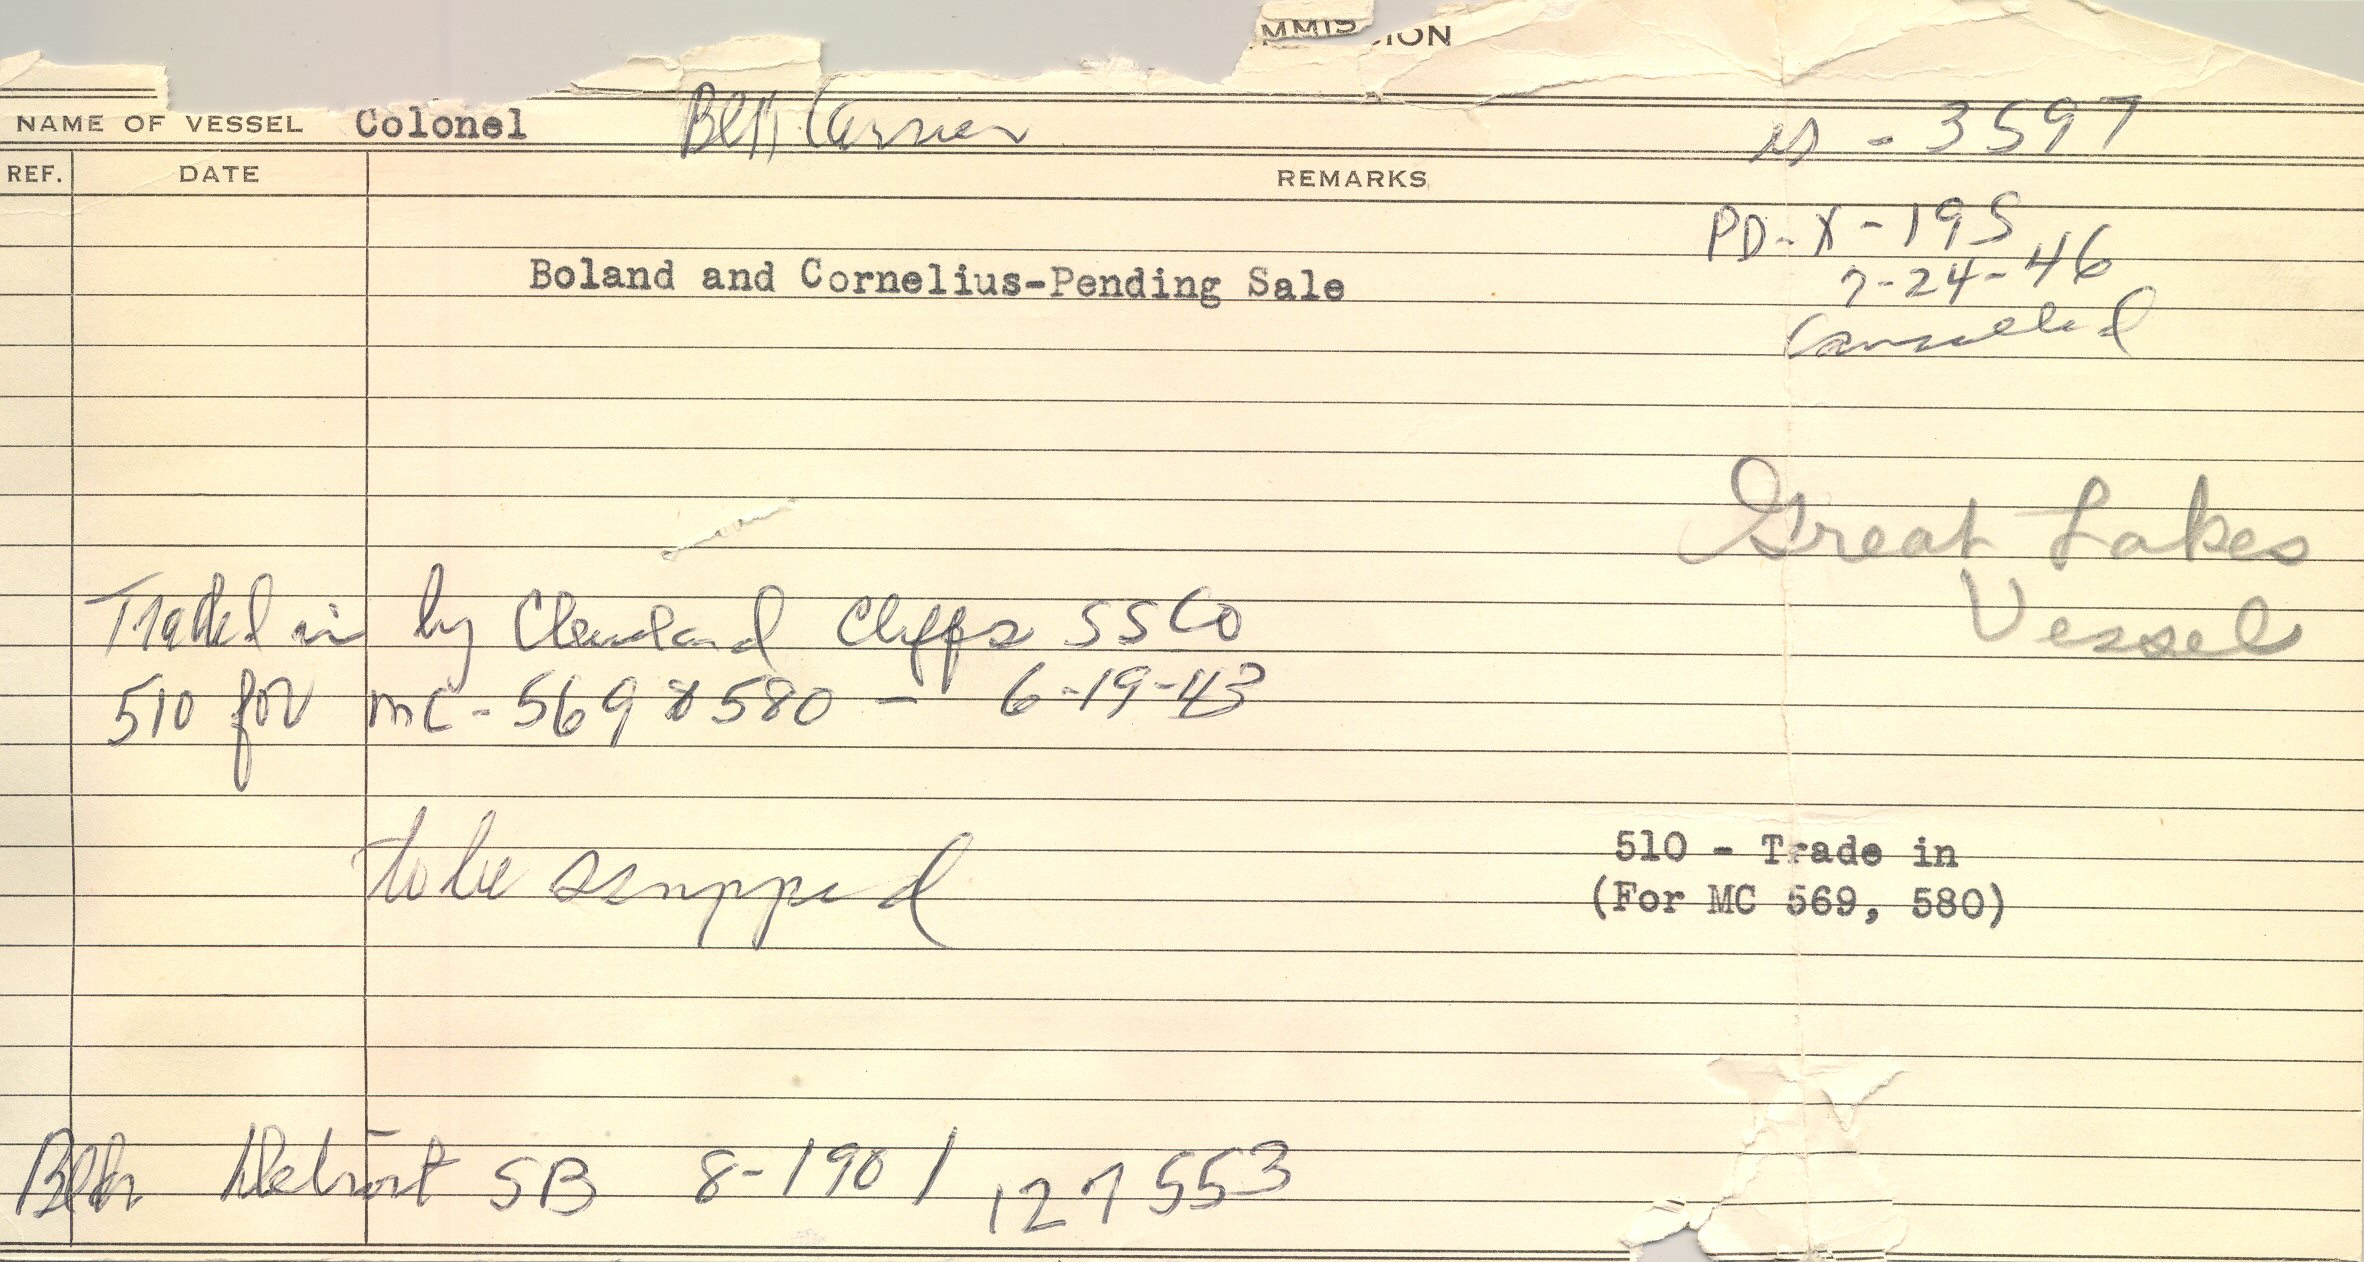 MMIS ION
NAME OF VESSEL Colonel Blk Carrier - 3597
REF. DATE REMARKS
PD-X-195
7-24-46
Cancelled
Boland and Cornelius-Pending Sale
Great Lakes
Vessel
Traded in by Cleveland Cliffs SS Co
510 for MC-569 & 580 - 6-19-43
to be scrapped
510 - Trade in
(For MC 569, 580)
Bldr Detroit SB 8-1901 127553